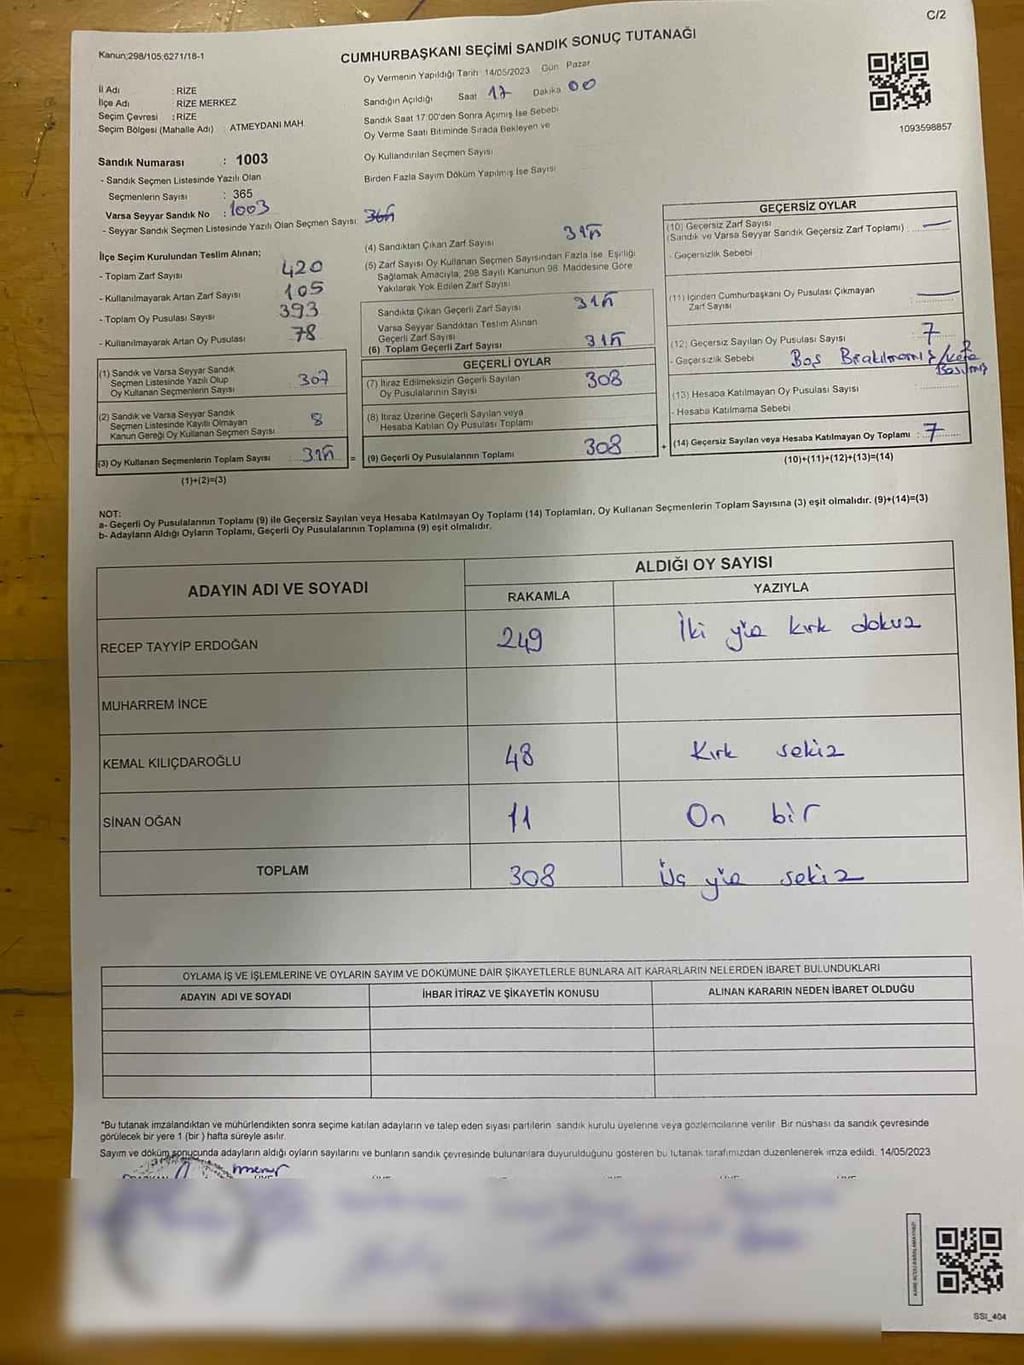 C/2
Kanun:298/105;6271/18-1
CUMHURBAŞKANI SEÇİMİ SANDIK SONUÇ TUTANAĞI
Oy Vermenin Yapıldığı Tarih 14/05/2023 Gün Pazar
İl Adı : RİZE
İlçe Adı : RİZE MERKEZ
Seçim Çevresi : RİZE
Seçim Bölgesi (Mahalle Adı) : ATMEYDANI MAH.
Sandığın Açıldığı Saat 17 Dakika 00
Sandık Saat 17:00'den Sonra Açımış İse Sebebi
Oy Verme Saati Bitiminde Sırada Bekleyen ve
Oy Kullandırılan Seçmen Sayısı
Birden Fazla Sayım Döküm Yapılmış İse Sayısı
1093598857
Sandık Numarası : 1003
- Sandık Seçmen Listesinde Yazılı Olan
Seçmenlerin Sayısı : 365
Varsa Seyyar Sandık No : 1003
- Seyyar Sandık Seçmen Listesinde Yazılı Olan Seçmen Sayısı:
İlçe Seçim Kurulundan Teslim Alınan;
- Toplam Zarf Sayısı 420
- Kullanılmayarak Artan Zarf Sayısı 105
- Toplam Oy Pusulası Sayısı 393
- Kullanılmayarak Artan Oy Pusulası 78
(1) Sandık ve Varsa Seyyar Sandık
Seçmen Listesinde Yazılı Olup
Oy Kullanan Seçmenlerin Sayısı 307
(2) Sandık ve Varsa Seyyar Sandık
Seçmen Listesinde Kayıtlı Olmayan
Kanun Gereği Oy Kullanan Seçmen Sayısı 8
(3) Oy Kullanan Seçmenlerin Toplam Sayısı 315 =
(1)+(2)=(3)
(4) Sandıktan Çıkan Zarf Sayısı 315
(5) Zarf Sayısı Oy Kullanan Seçmen Sayısından Fazla İse, Eşitliği
Sağlamak Amacıyla, 298 Sayılı Kanunun 98. Maddesine Göre
Yakılarak Yok Edilen Zarf Sayısı
Sandıkta Çıkan Geçerli Zarf Sayısı 315
Varsa Seyyar Sandıktan Teslim Alınan
Geçerli Zarf Sayısı
(6) Toplam Geçerli Zarf Sayısı 315
GEÇERLİ OYLAR
(7) İtiraz Edilmeksizin Geçerli Sayılan
Oy Pusulalarının Sayısı 308
(8) İtiraz Üzerine Geçerli Sayılan veya
Hesaba Katılan Oy Pusulası Toplamı
(9) Geçerli Oy Pusulalarının Toplamı 308 +
GEÇERSİZ OYLAR
(10) Geçersiz Zarf Sayısı
(Sandık ve Varsa Seyyar Sandık Geçersiz Zarf Toplamı)
- Geçersizlik Sebebi
(11) İçinden Cumhurbaşkanı Oy Pusulası Çıkmayan
Zarf Sayısı
(12) Geçersiz Sayılan Oy Pusulası Sayısı 7
- Geçersizlik Sebebi Boş Bırakılmamış
(13) Hesaba Katılmayan Oy Pusulası Sayısı
- Hesaba Katılmama Sebebi
(14) Geçersiz Sayılan veya Hesaba Katılmayan Oy Toplamı : 7
(10)+(11)+(12)+(13)=(14)
NOT:
a- Geçerli Oy Pusulalarının Toplamı (9) ile Geçersiz Sayılan veya Hesaba Katılmayan Oy Toplamı (14) Toplamları, Oy Kullanan Seçmenlerin Toplam Sayısına (3) eşit olmalıdır. (9)+(14)=(3)
b- Adayların Aldığı Oyların Toplamı, Geçerli Oy Pusulalarının Toplamına (9) eşit olmalıdır.
ADAYIN ADI VE SOYADI
ALDIĞI OY SAYISI
RAKAMLA YAZIYLA
RECEP TAYYİP ERDOĞAN 249 İki yüz kırk dokuz
MUHARREM İNCE
KEMAL KILIÇDAROĞLU 48 Kırk sekiz
SİNAN OĞAN 11 On bir
TOPLAM 308 Üç yüz sekiz
OYLAMA İŞ VE İŞLEMLERİNE VE OYLARIN SAYIM VE DÖKÜMÜNE DAİR ŞİKAYETLERLE BUNLARA AİT KARARLARIN NELERDEN İBARET BULUNDUKLARI
ADAYIN ADI VE SOYADI İHBAR İTİRAZ VE ŞİKAYETİN KONUSU ALINAN KARARIN NEDEN İBARET OLDUĞU
*Bu tutanak imzalandıktan ve mühürlendikten sonra seçime katılan adayların ve talep eden siyasi partilerin sandık kurulu üyelerine veya gözlemcilerine verilir. Bir nüshası da sandık çevresinde
görülecek bir yere 1 (bir) hafta süreyle asılır.
Sayım ve döküm sonucunda adayların aldığı oyların sayılarını ve bunların sandık çevresinde bulunanlara duyurulduğunu gösteren bu tutanak tarafımızdan düzenlenerek imza edildi. 14/05/2023
SSI_404